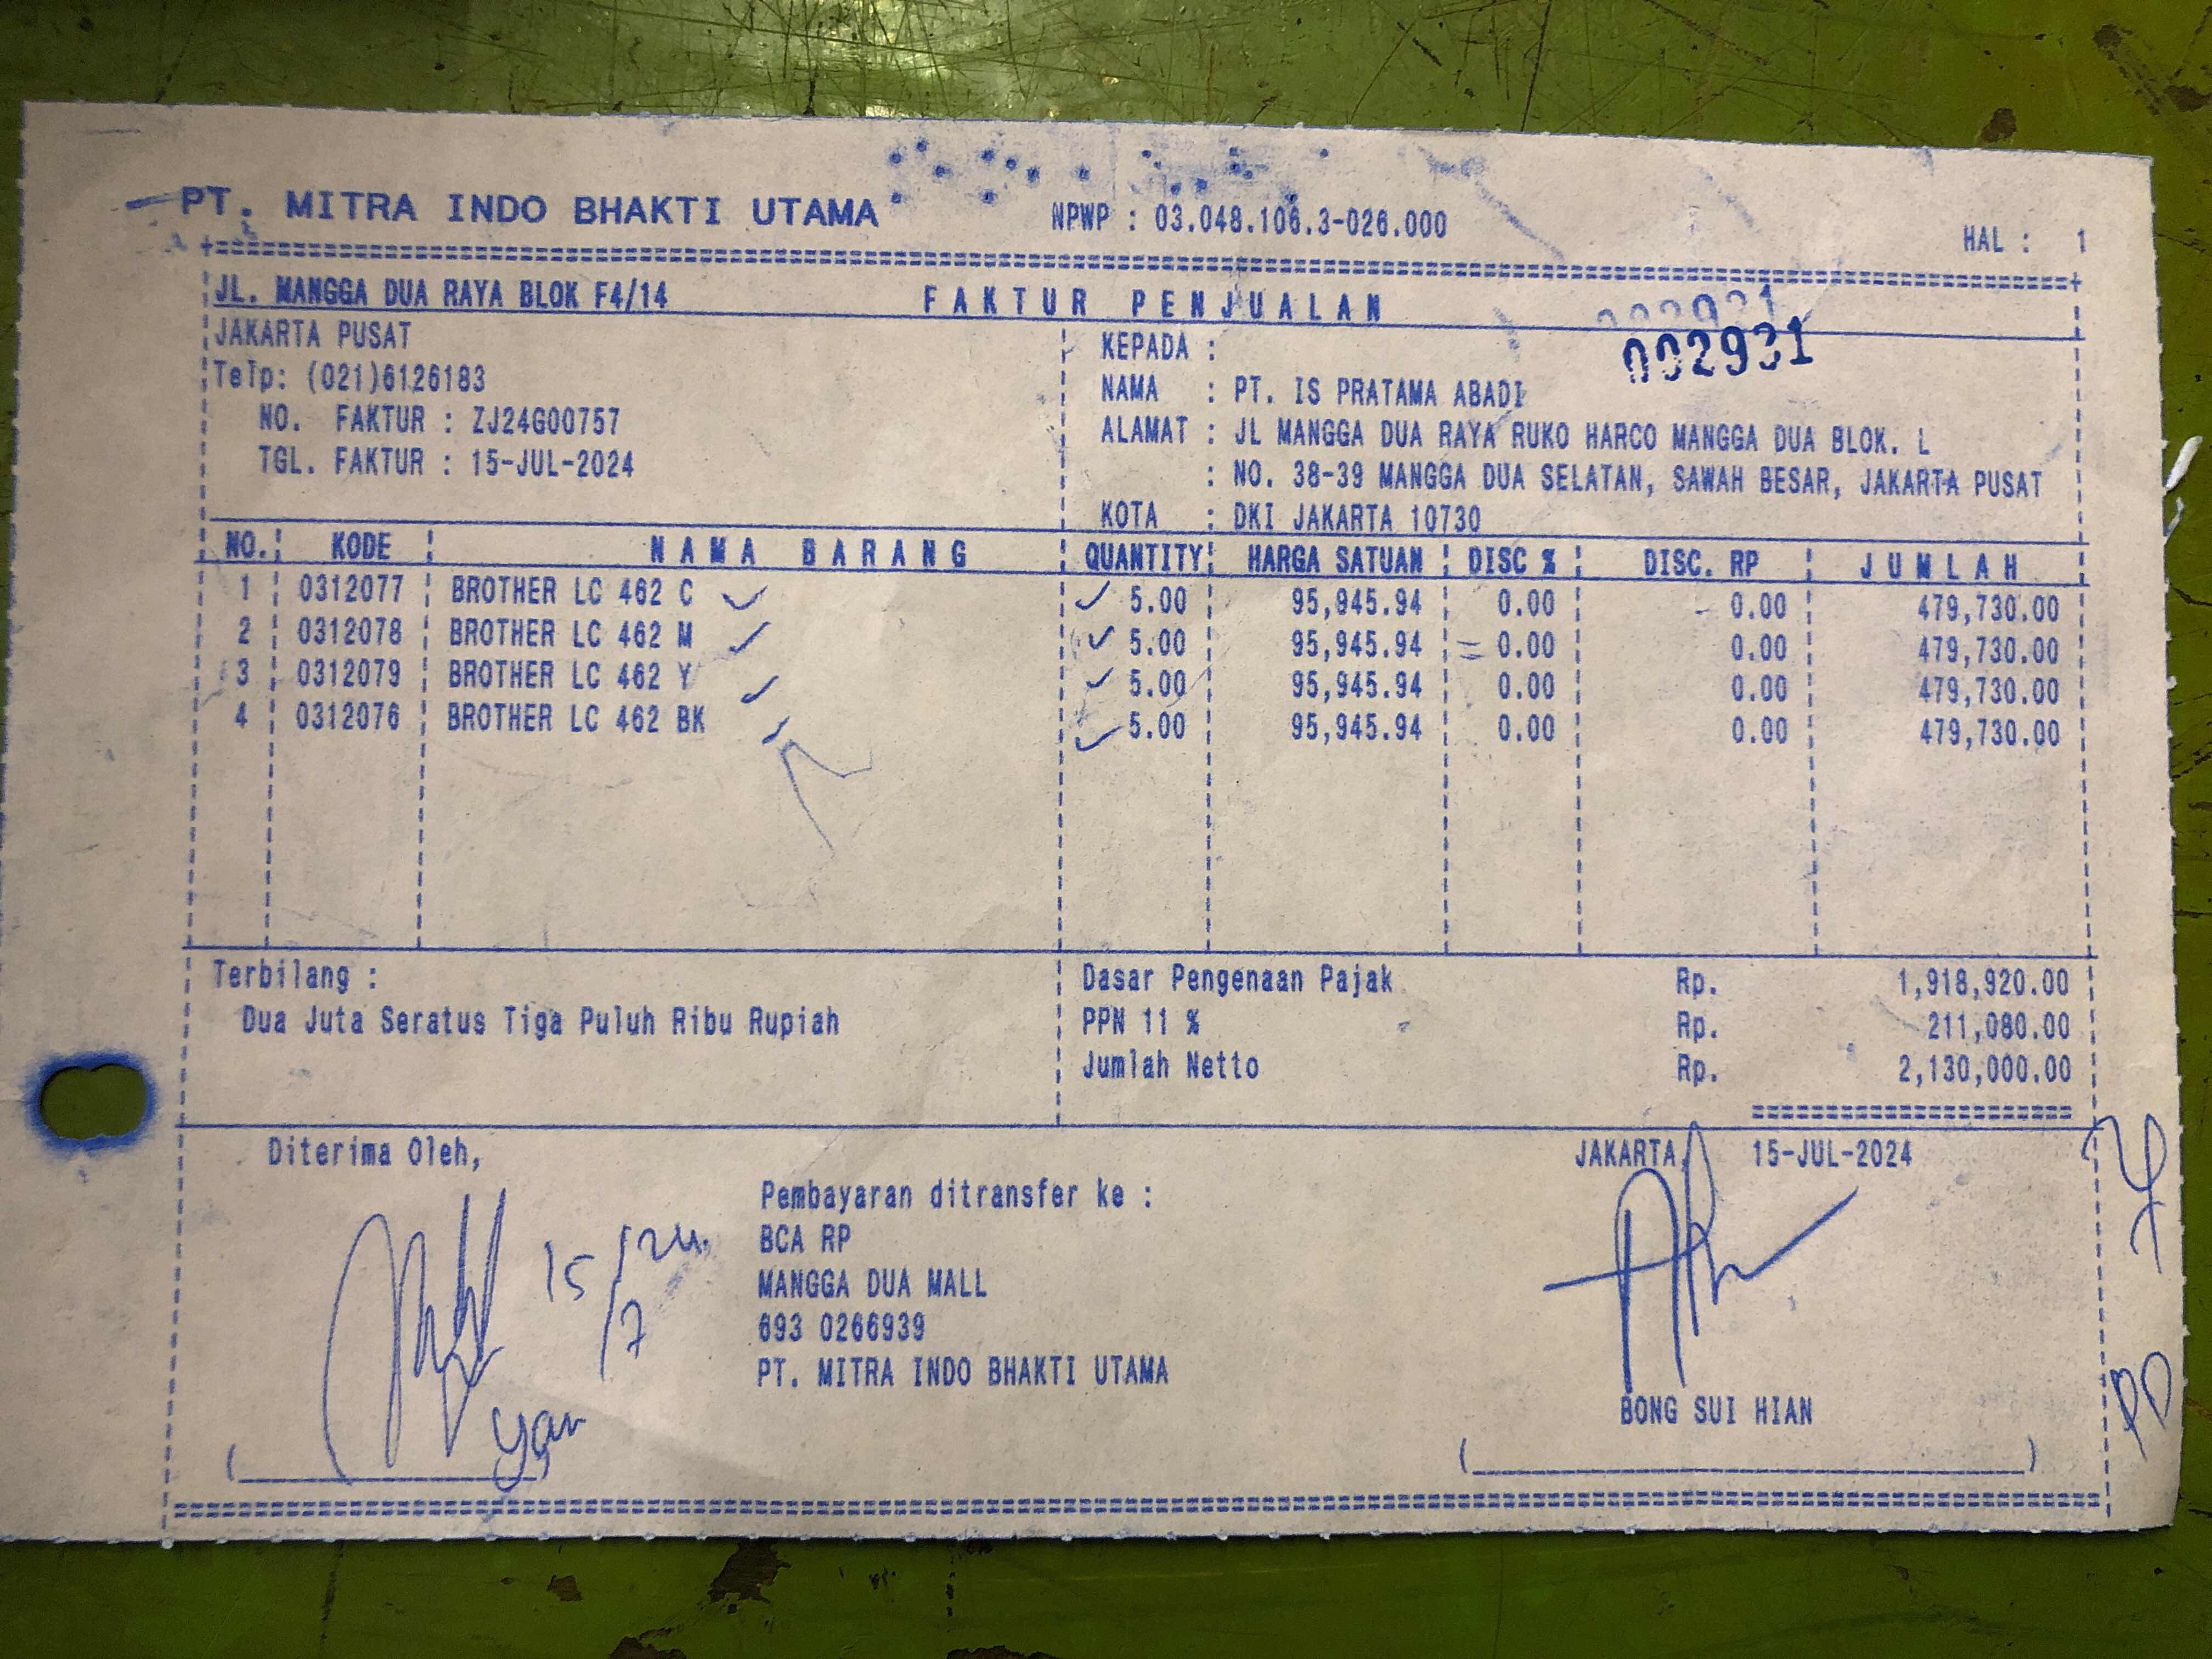 PT. MITRA INDO BHAKTI UTAMA NPWP : 03.048.106.3-026.000 HAL : 1
JL. MANGGA DUA RAYA BLOK F4/14 FAKTUR PENJUALAN
JAKARTA PUSAT
Telp: (021)6126183
NO. FAKTUR : ZJ24G00757
TGL. FAKTUR : 15-JUL-2024
002931
002931
KEPADA :
NAMA : PT. IS PRATAMA ABADI
ALAMAT : JL MANGGA DUA RAYA RUKO HARCO MANGGA DUA BLOK. L
: NO. 38-39 MANGGA DUA SELATAN, SAWAH BESAR, JAKARTA PUSAT
KOTA : DKI JAKARTA 10730
NO. KODE NAMA BARANG QUANTITY HARGA SATUAN DISC % DISC. RP JUMLAH
1 0312077 BROTHER LC 462 C 5.00 95,945.94 0.00 0.00 479,730.00
2 0312078 BROTHER LC 462 M 5.00 95,945.94 0.00 0.00 479,730.00
3 0312079 BROTHER LC 462 Y 5.00 95,945.94 0.00 0.00 479,730.00
4 0312076 BROTHER LC 462 BK 5.00 95,945.94 0.00 0.00 479,730.00
Terbilang :
Dua Juta Seratus Tiga Puluh Ribu Rupiah
Dasar Pengenaan Pajak Rp. 1,918,920.00
PPN 11 % Rp. 211,080.00
Jumlah Netto Rp. 2,130,000.00
Diterima Oleh,
15/7/24
Yan
Pembayaran ditransfer ke :
BCA RP
MANGGA DUA MALL
693 0266939
PT. MITRA INDO BHAKTI UTAMA
JAKARTA, 15-JUL-2024
BONG SUI HIAN